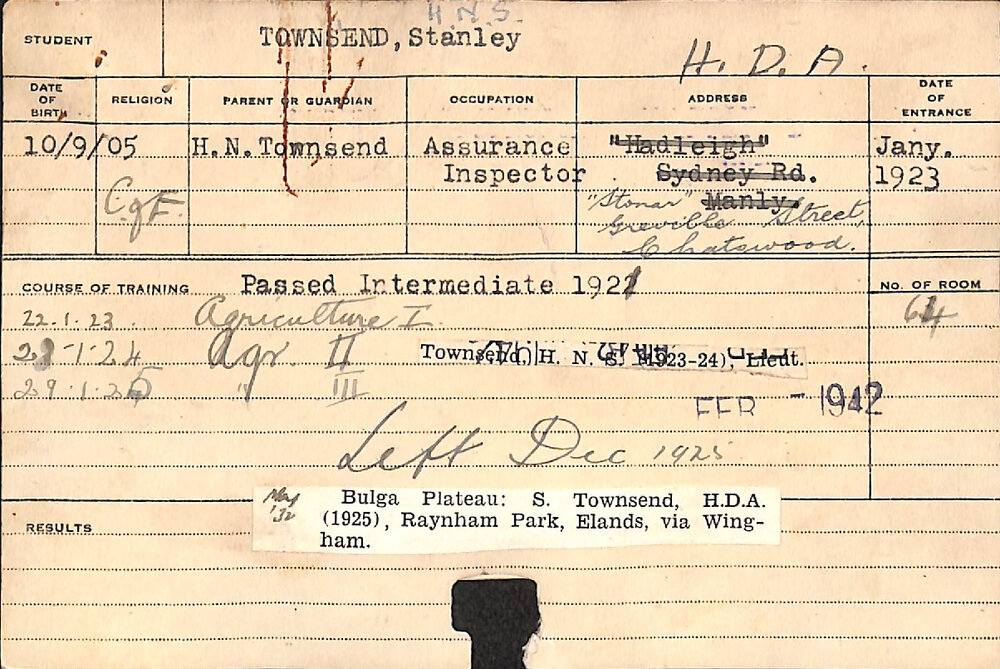 H.N.S.
STUDENT TOWNSEND, Stanley
H. D. A.
DATE OF BIRTH RELIGION PARENT OR GUARDIAN OCCUPATION ADDRESS DATE OF ENTRANCE
10/9/05 H.N.Townsend Assurance "Hadleigh" Jany.
Inspector Sydney Rd. 1923
C of E. "Stonar" Manly.
Greville Street,
Chatswood.
COURSE OF TRAINING Passed Intermediate 1921 No. OF ROOM
22.1.23. Agriculture I. 64
-1-24 Agr. II Townsend, H. N. S. (1923-24), Lieut.
29.1.25 " III
FEB - 1942
Left Dec 1925
May '32
Bulga Plateau: S. Townsend, H.D.A.
(1925), Raynham Park, Elands, via Wing-
ham.
RESULTS